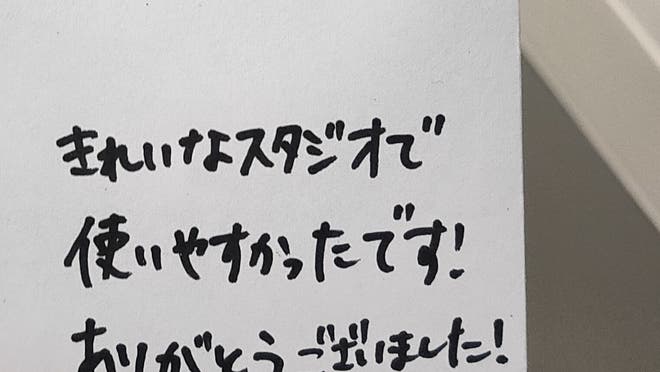 きれいなスタジオで
使いやすかったです!
ありがとうございました!